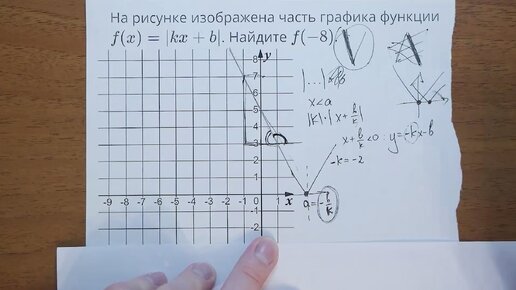 На рисунке изображена часть графика функции
f(x) = |kx + b|. Найдите f(−8)
|...| ≥ 0
x < a
|k| · |x + b/k|
x + b/k < 0 : y = −kx − b
−k = −2
a = −b/k
y
8
7
6
5
4
3
2
1
-9 -8 -7 -6 -5 -4 -3 -2 -1 0 1 x
-1
-2